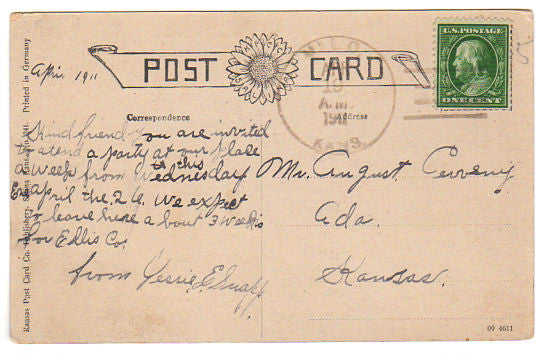 April 1911
POST CARD
MILO
APR
19
A.M.
1911
KANS.
U.S. POSTAGE
ONE CENT
Correspondence
Address
Kind friend you are invited
to atend a party at our place
a week from this Wednesday
april the 26. We expect
to leave here a bout 3 weeks
for Ellis Co.
from Jessie E.
Mr. August
Ada.
Kansas.
Kansas Post Card Co. Publishers, Printed in Germany
09 4611